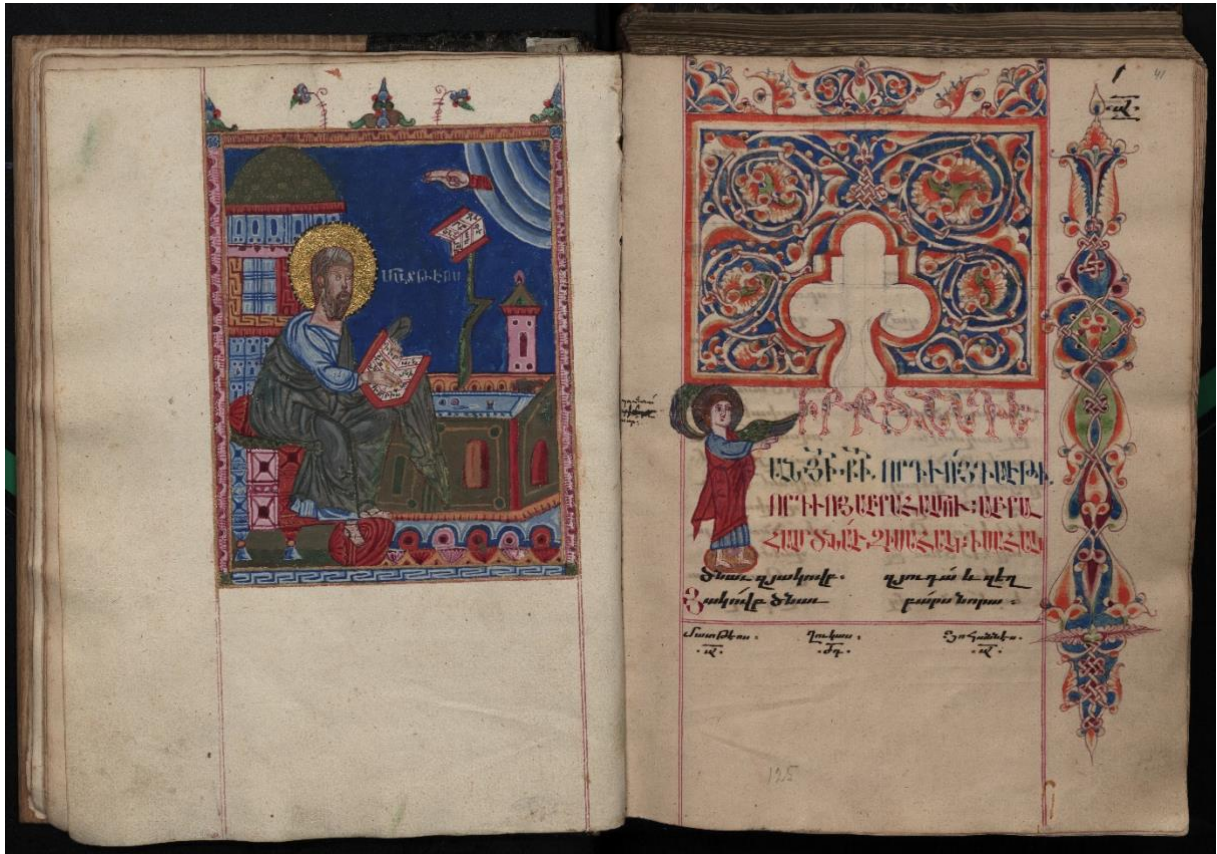 ՄԱՏԹԷՈՍ
41
ԻՐՔ ԾՆՆԴԵԱՆ
ՅԻ ՔԻ ՈՐԴՒՈՅ ԴԱՒԹԻ
ՈՐԴՒՈՅ ԱԲՐԱՀԱՄՈՒ։ ԱԲՐԱ
ՀԱՄ ԾՆԱՒ ԶԻՍԱՀԱԿ։ ԻՍԱՀԱԿ
ծնաւ զյակովբ.
Յակովբ ծնաւ
զյուդա և զեղ
բարս նորա։
մատթէոս. ղուկաս. Յովհաննէս.
.ա. .ժդ. .ա.
125